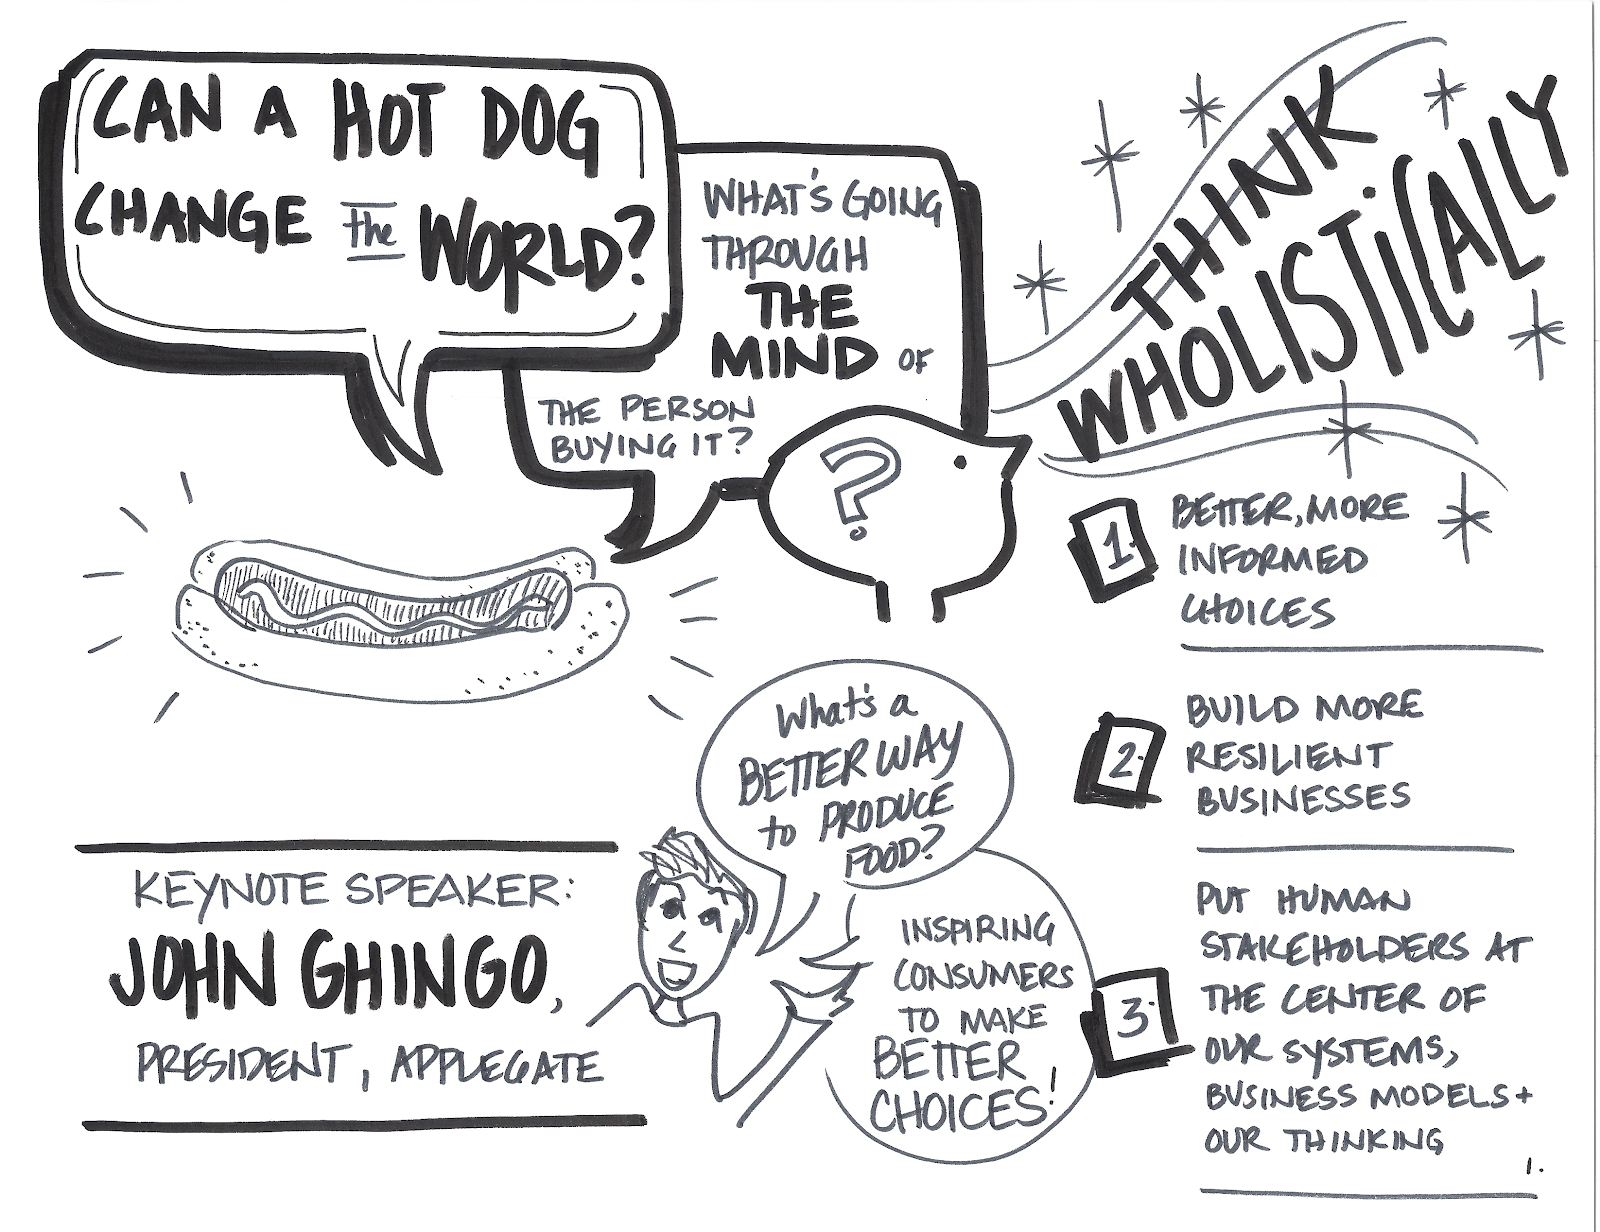 CAN A HOT DOG
CHANGE the WORLD?
WHAT'S GOING
THROUGH
THE
MIND OF
THE PERSON
BUYING IT?
?
THINK
WHOLISTICALLY
1.
BETTER, MORE
INFORMED
CHOICES
2.
BUILD MORE
RESILIENT
BUSINESSES
3.
PUT HUMAN
STAKEHOLDERS AT
THE CENTER OF
OUR SYSTEMS,
BUSINESS MODELS +
OUR THINKING
What's a
BETTER WAY
to PRODUCE
FOOD?
INSPIRING
CONSUMERS
TO MAKE
BETTER
CHOICES!
KEYNOTE SPEAKER:
JOHN GHINGO,
PRESIDENT, APPLEGATE
1.